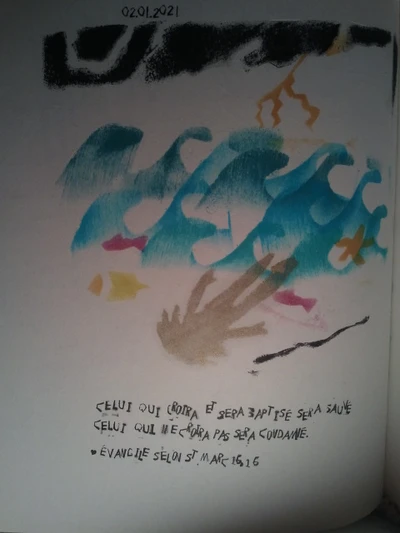 02.01.2021
CELUI QUI CROIRA ET SERA BAPTISÉ SERA SAUVÉ
CELUI QUI NE CROIRA PAS SERA CONDAMNÉ.
• ÉVANGILE SELON ST MARC 16,16